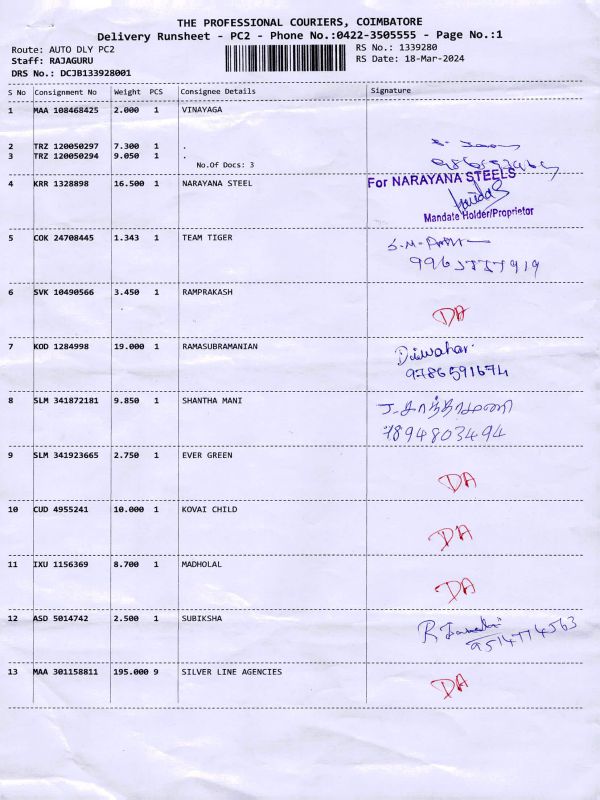 THE PROFESSIONAL COURIERS, COIMBATORE
Delivery Runsheet - PC2 - Phone No.:0422-3505555 - Page No.:1
Route: AUTO DLY PC2 RS No.: 1339280
Staff: RAJAGURU RS Date: 18-Mar-2024
DRS No.: DCJB133928001
S No Consignment No Weight PCS Consignee Details Signature
1 MAA 108468425 2.000 1 VINAYAGA
2 TRZ 120050297 7.300 1 .
3 TRZ 120050294 9.050 1 .
No.Of Docs: 3
4 KRR 1328898 16.500 1 NARAYANA STEEL For NARAYANA STEELS
Mandate Holder/Proprietor
5 COK 24708445 1.343 1 TEAM TIGER
6 SVK 10490566 3.450 1 RAMPRAKASH DA
7 KOD 1284998 19.000 1 RAMASUBRAMANIAN Diwahar
9786591674
8 SLM 341872181 9.850 1 SHANTHA MANI
7894803494
9 SLM 341923665 2.750 1 EVER GREEN DA
10 CUD 4955241 10.000 1 KOVAI CHILD DA
11 IXU 1156369 8.700 1 MADHOLAL DA
12 ASD 5014742 2.500 1 SUBIKSHA
9514774563
13 MAA 301158811 195.000 9 SILVER LINE AGENCIES DA